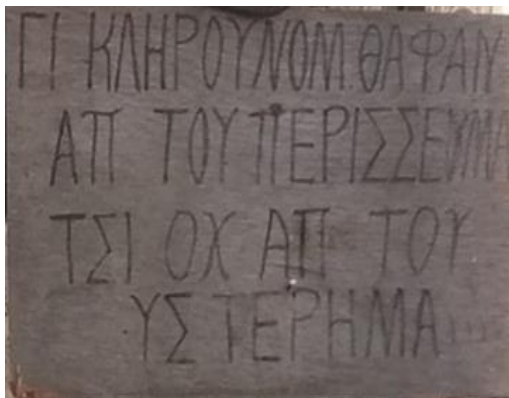 ΓΙ ΚΛΗΡΟΥΝΟΜ. ΘΑ ΦΑΝ
ΑΠ ΤΟΥ ΠΕΡΙΣΣΕΥΜΑ
ΤΣΙ ΟΧ ΑΠ ΤΟΥ
ΥΣΤΕΡΗΜΑ